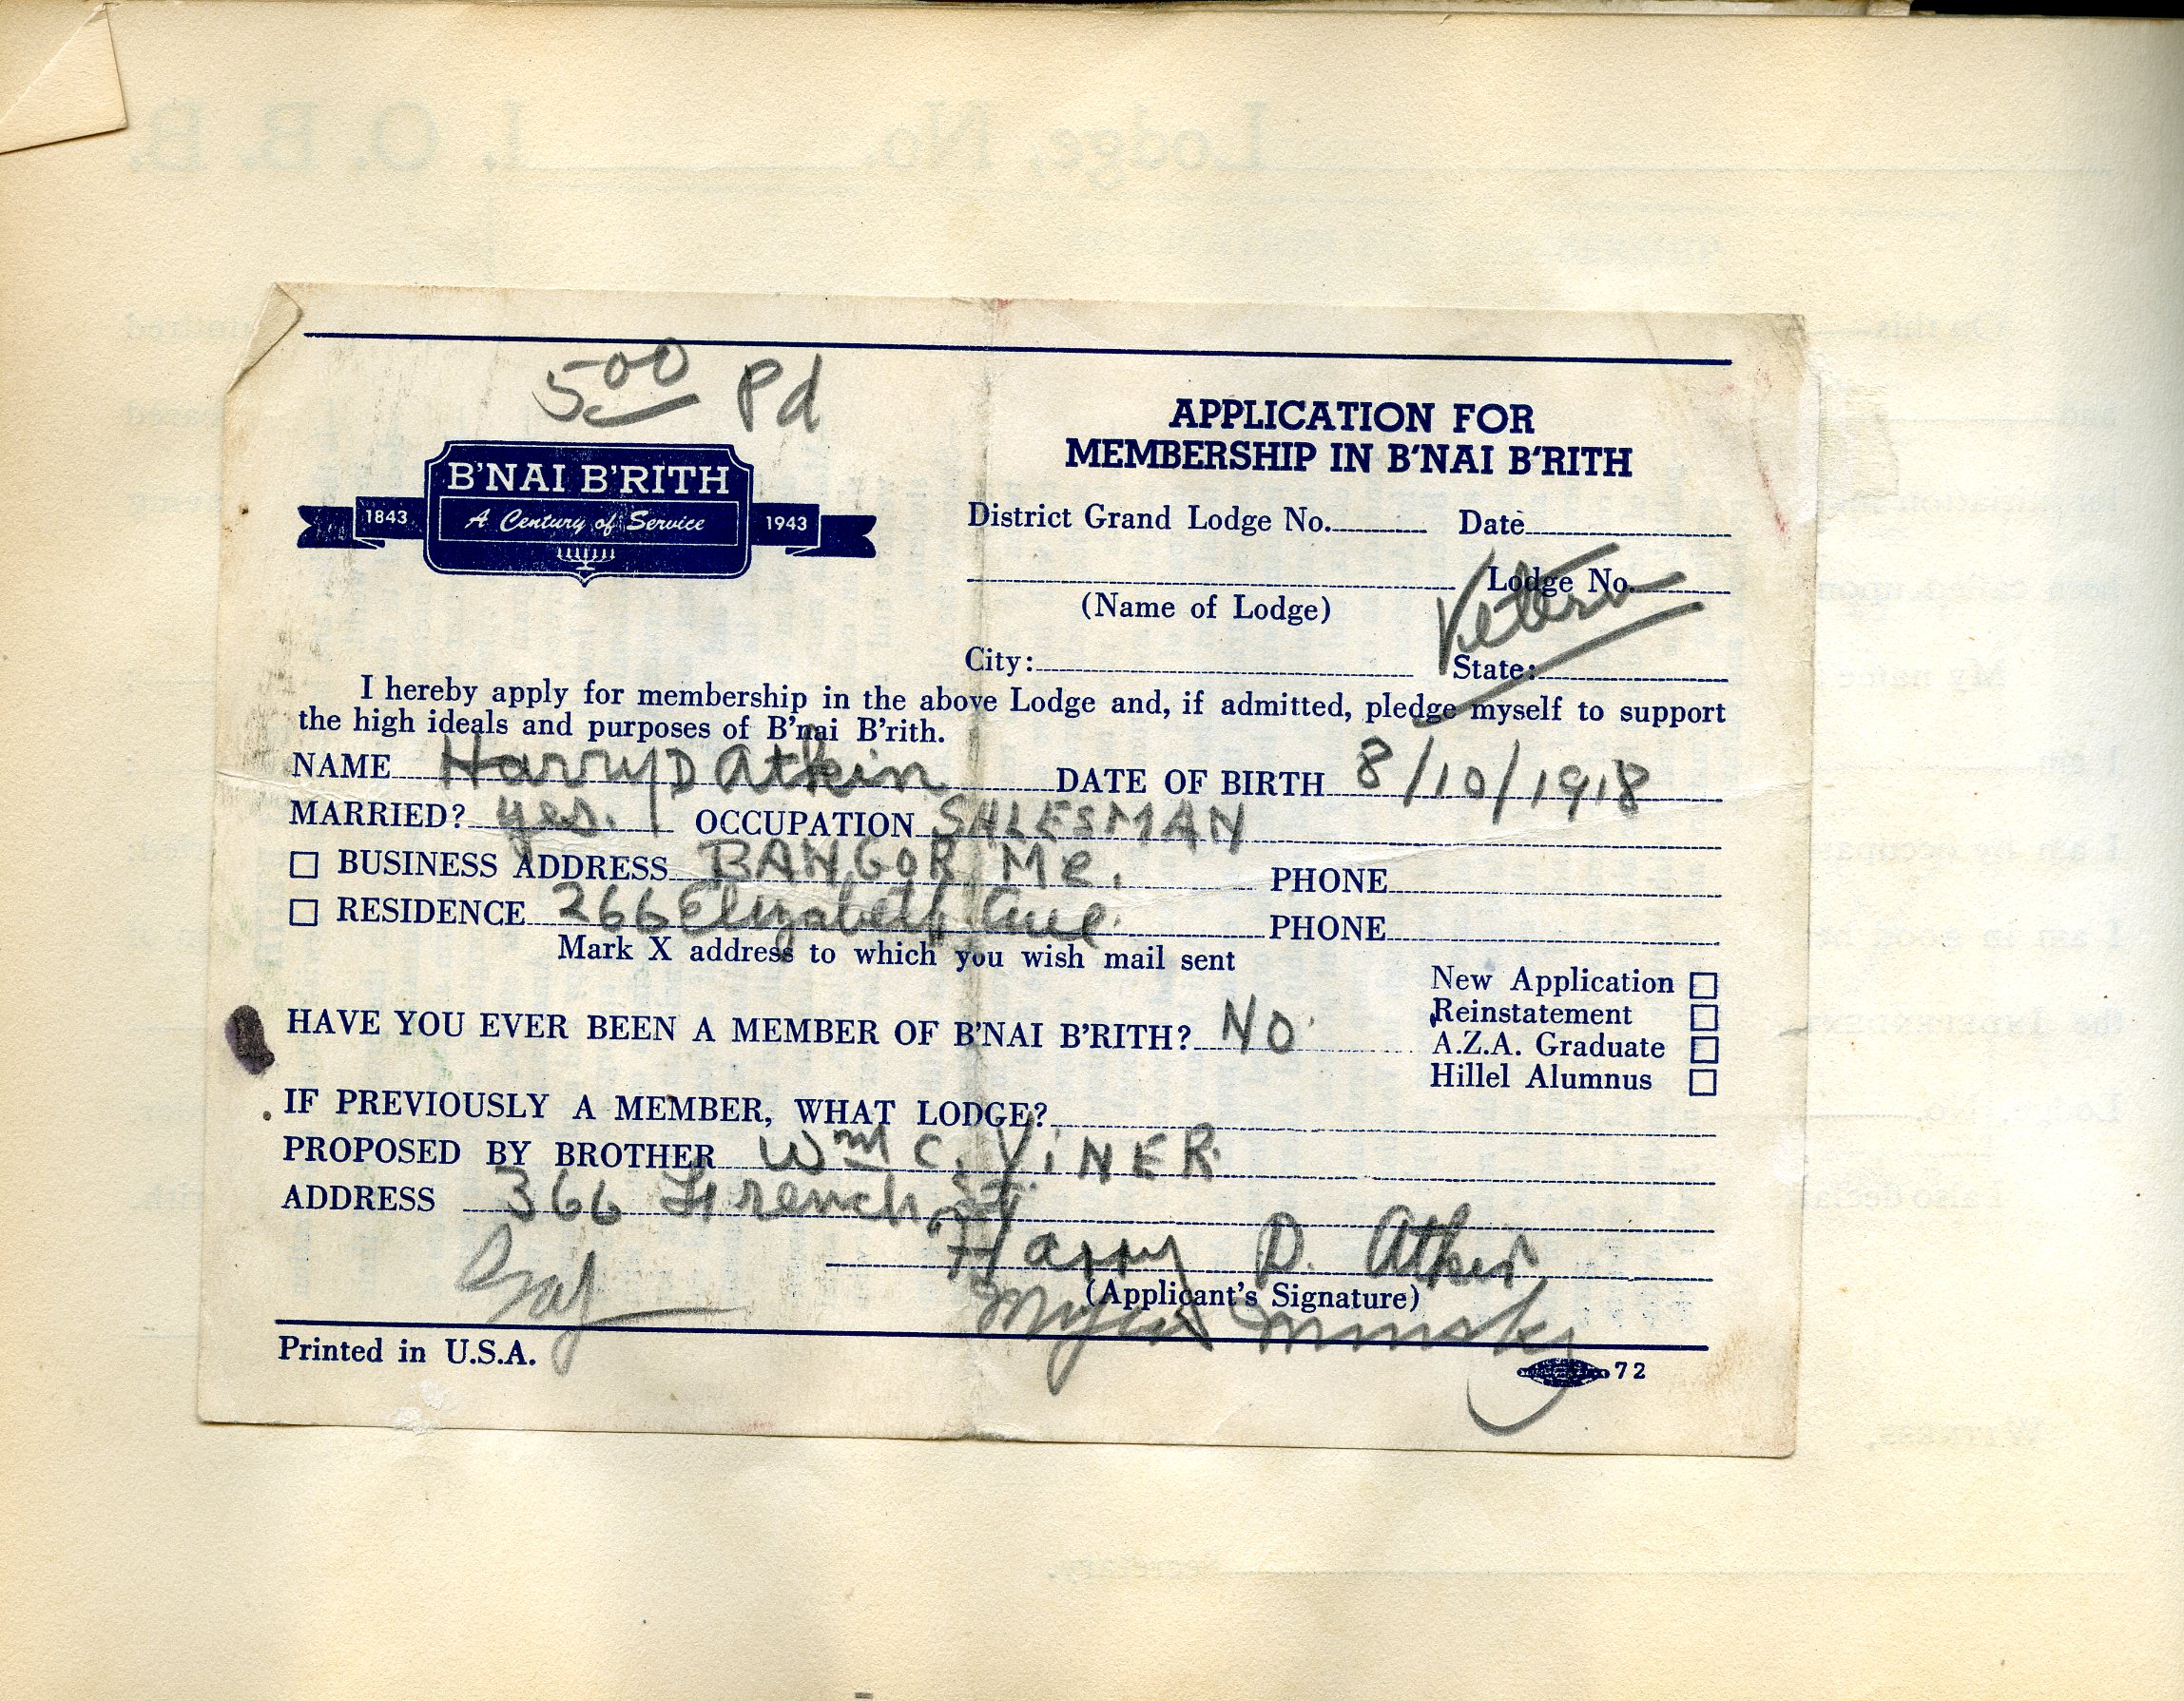 5.00 Pd
APPLICATION FOR
MEMBERSHIP IN B'NAI B'RITH
B'NAI B'RITH
1843 A Century of Service 1943
District Grand Lodge No. Date
Lodge No.
Veteran
(Name of Lodge)
City: State:
I hereby apply for membership in the above Lodge and, if admitted, pledge myself to support
the high ideals and purposes of B'nai B'rith.
NAME Harry D Atkin DATE OF BIRTH 8/10/1918
MARRIED? yes. OCCUPATION SALESMAN
BUSINESS ADDRESS BANGOR Me. PHONE
RESIDENCE 266 Elizabeth Ave. PHONE
Mark X address to which you wish mail sent
New Application
HAVE YOU EVER BEEN A MEMBER OF B'NAI B'RITH? NO. Reinstatement
A.Z.A. Graduate
Hillel Alumnus
IF PREVIOUSLY A MEMBER, WHAT LODGE?
PROPOSED BY BROTHER Wm C. VINER
ADDRESS 366 French St
Harry D. Atkin
(Applicant's Signature)
Minsky
Printed in U.S.A.
72
Lodge, No. I. O. B. B.